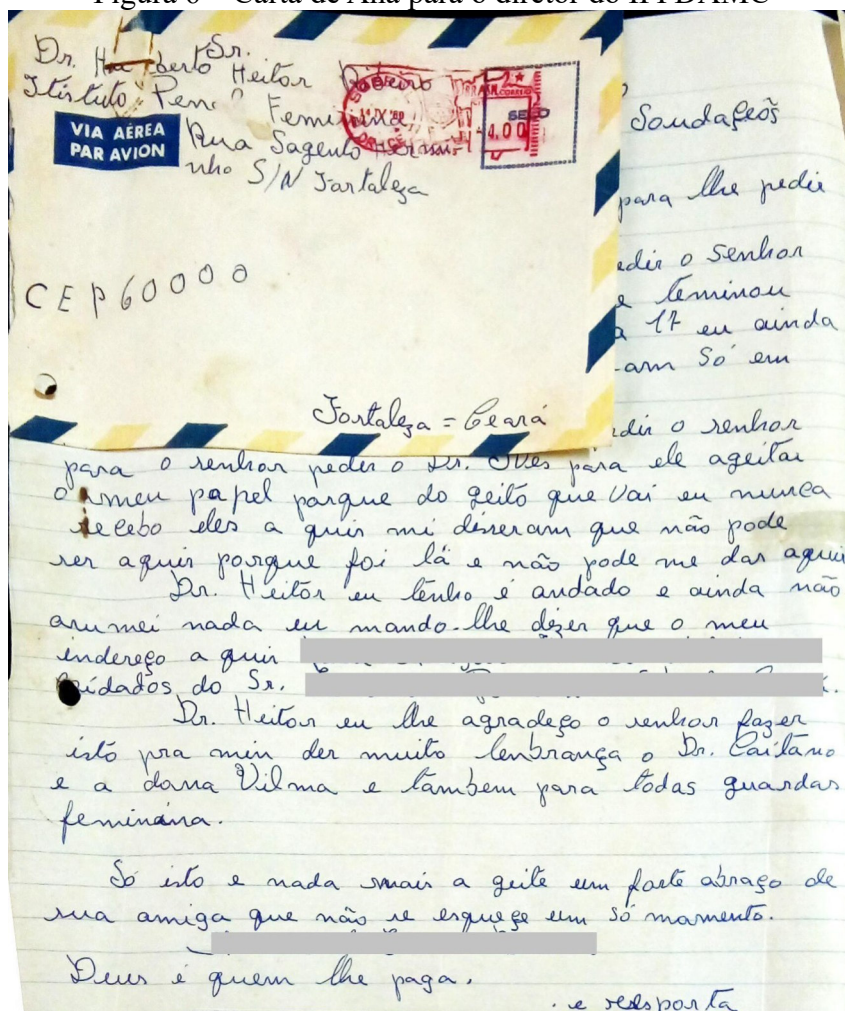 Figura 6 – Carta de Ana para o diretor do IPFDAMC
Dr. Heitor Ribeiro
Sr.
Feminina
VIA AÉREA
PAR AVION
Rua Sagento Hermi-
nho S/N Fortaleza
CORREIO
SELO
4.00
CEP 60000
Fortaleza = Ceará
Soudaçeõs
para lhe pedir
o Senhor
teminou
17 eu ainda
Só em
o senhor
para o senhor peder o Dr. para ele ageitar
o meu papel porque do geito que vai eu nunca
recebo eles a quir mi disseram que não pode
ser aquir porque foi lá e não pode me dar aquir
Dr. Heitor eu tenho é andado e ainda não
arumei nada eu mando-lhe dizer que o meu
indereço a quir
do Sr.
Dr. Heitor eu lhe agradeço o senhor fazer
isto pra min der muito lenbrança o Dr. Caitano
e a dona Vilma e tambem para todas guardas
feminina.
Só isto e nada mais a geite um forte abraço de
sua amiga que não se esqueçe um só mamento.
Deus é quem lhe paga.